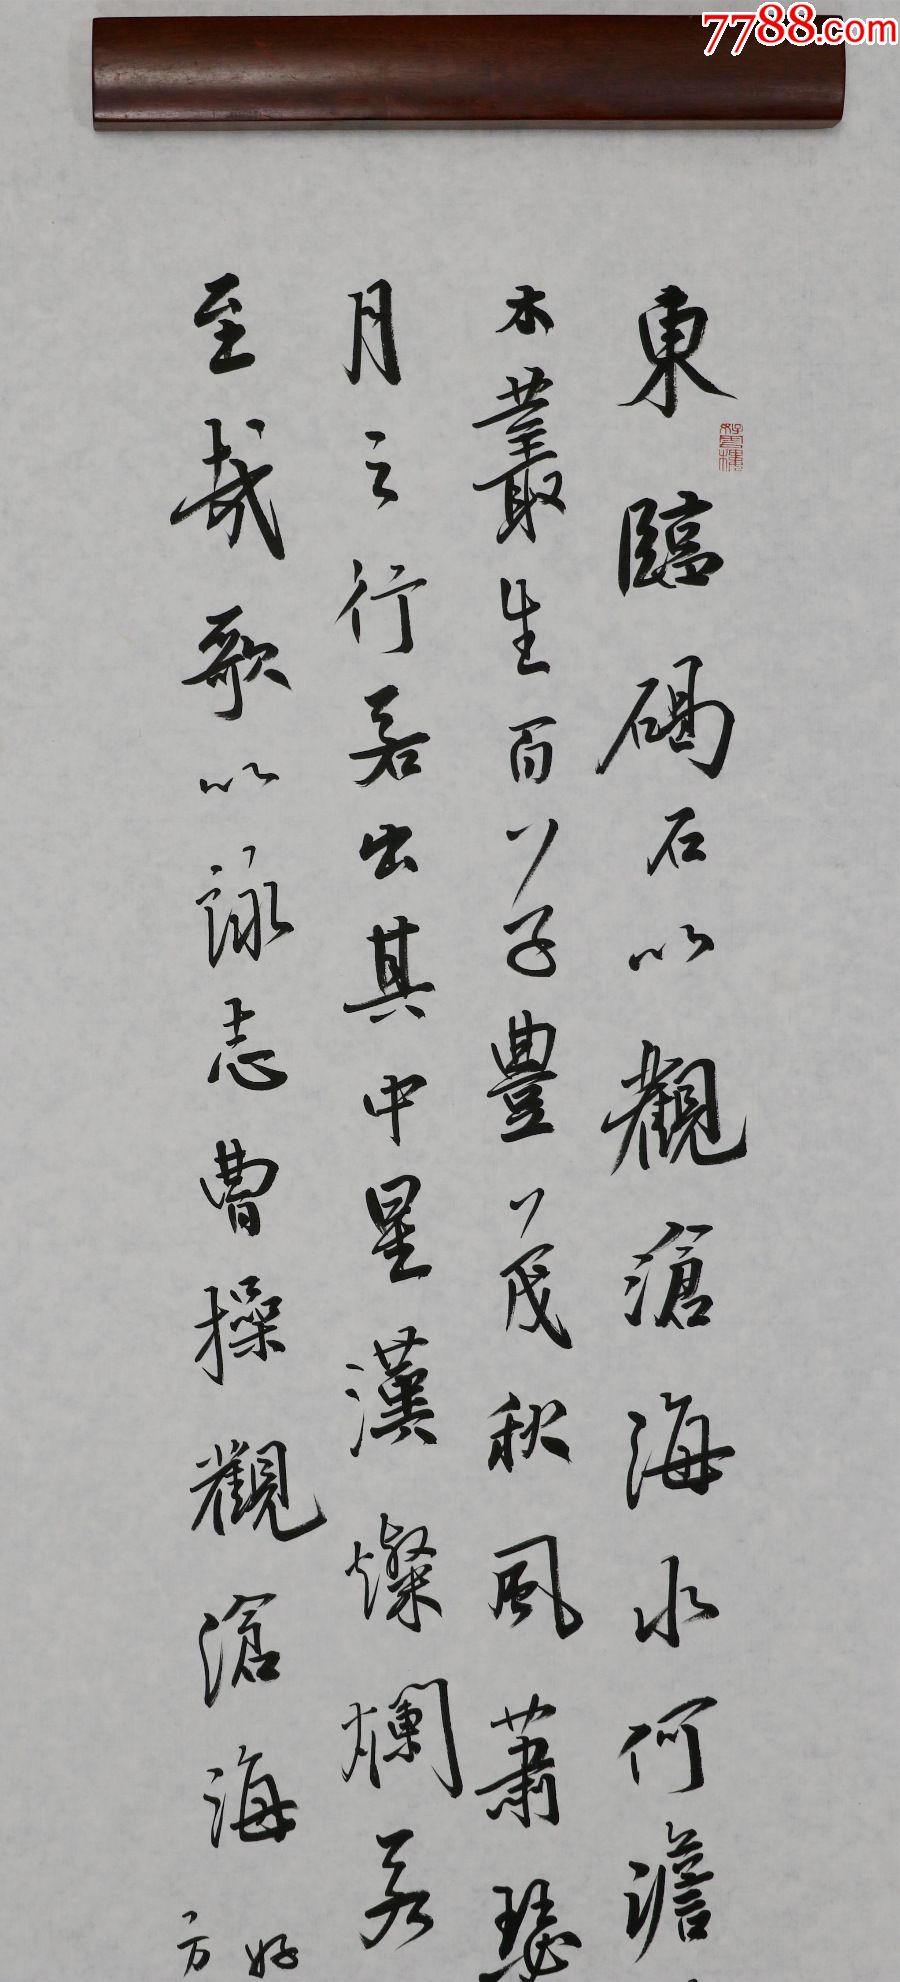 7788.com
東臨碣石以觀滄海水何澹
木叢生百丷子豐丷茂秋風蕭瑟
月之行若出其中星漢燦爛若
至哉歌以詠志曹操觀滄海
好
方